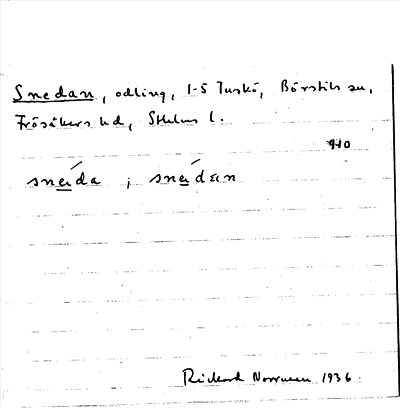 Snedan, odling, 1-5 Tuskö, Börstils sn,
Frösåkers hd, Sthlms l.
910
sneída ; sneídɛn
Rickard Norrman 1936.